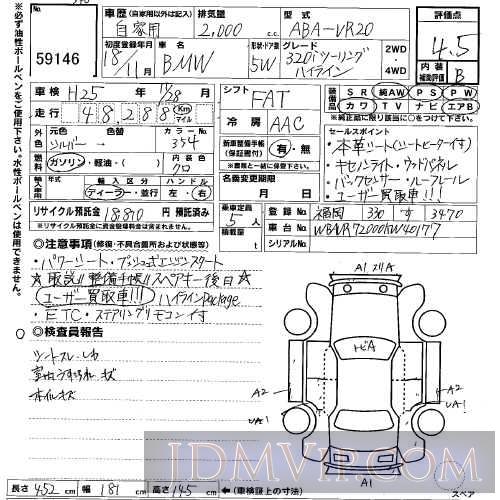 59146
車歴 (自家用以外は記入)
自家用
排気量
2,000 c.c.
型式
ABA-VR20
評価点
4.5
内装 補助評価 B
初度登録年月
18年 11月
車名
BMW
形状・ドア数
5W
グレード
320iツーリング
ハイライン
2WD・4WD
車検 H25年 10/28
走行 48,288 Km マイル
シフト FAT
冷房 AAC
装備品
SR 純AW PS PW
カワ TV ナビ エアB
※純正品に限り該当に○をつけて下さい。
外色 元色 シルバー 色替 カラーNo. 354
燃料 ガソリン・軽油・( )
内装色 クロ
輸入車 輸入区分 ディーラー・並行
ハンドル 左・右
新車整備手帳(保証書付) 有・無
名義変更期限
月 日
セールスポイント
・本革シート(シートヒーター付)
・キセノンライト・ウッドパネル
・バックセンサー・ルーフレール
・ユーザー買取車!!!
リサイクル預託金 18810円 預託済み
乗車定員 5人
積載量 t
登録No. 福岡 330 す 3470
車台No. WBAVR72000KW40177
シリアルNo.
◎注意事項 (修復・不具合箇所および状態)
・パワーシート・プッシュ式エンジンスタート
☆取説!! 整備手帳!! スペアキー後日☆
ユーザー買取車!!! ハイラインPackage
・ETC・ステアリングリモコン付
◎検査員報告
シートスレ・シワ
室内うすよごれ キズ
ホイルキズ
A1
トビA
A2
A2
A1
A1
スペア
長さ 452 cm 幅 181 cm 高さ 145 cm ←(車検証上の寸法)
※必ず油性ボールペンをご使用下さい。水性ボールペンは使用できません。
JDMVIP.COM
JDMVIP.COM